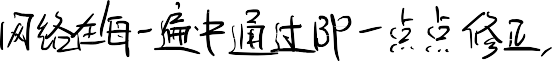 网络在每一遍中通过BP一点点修正,